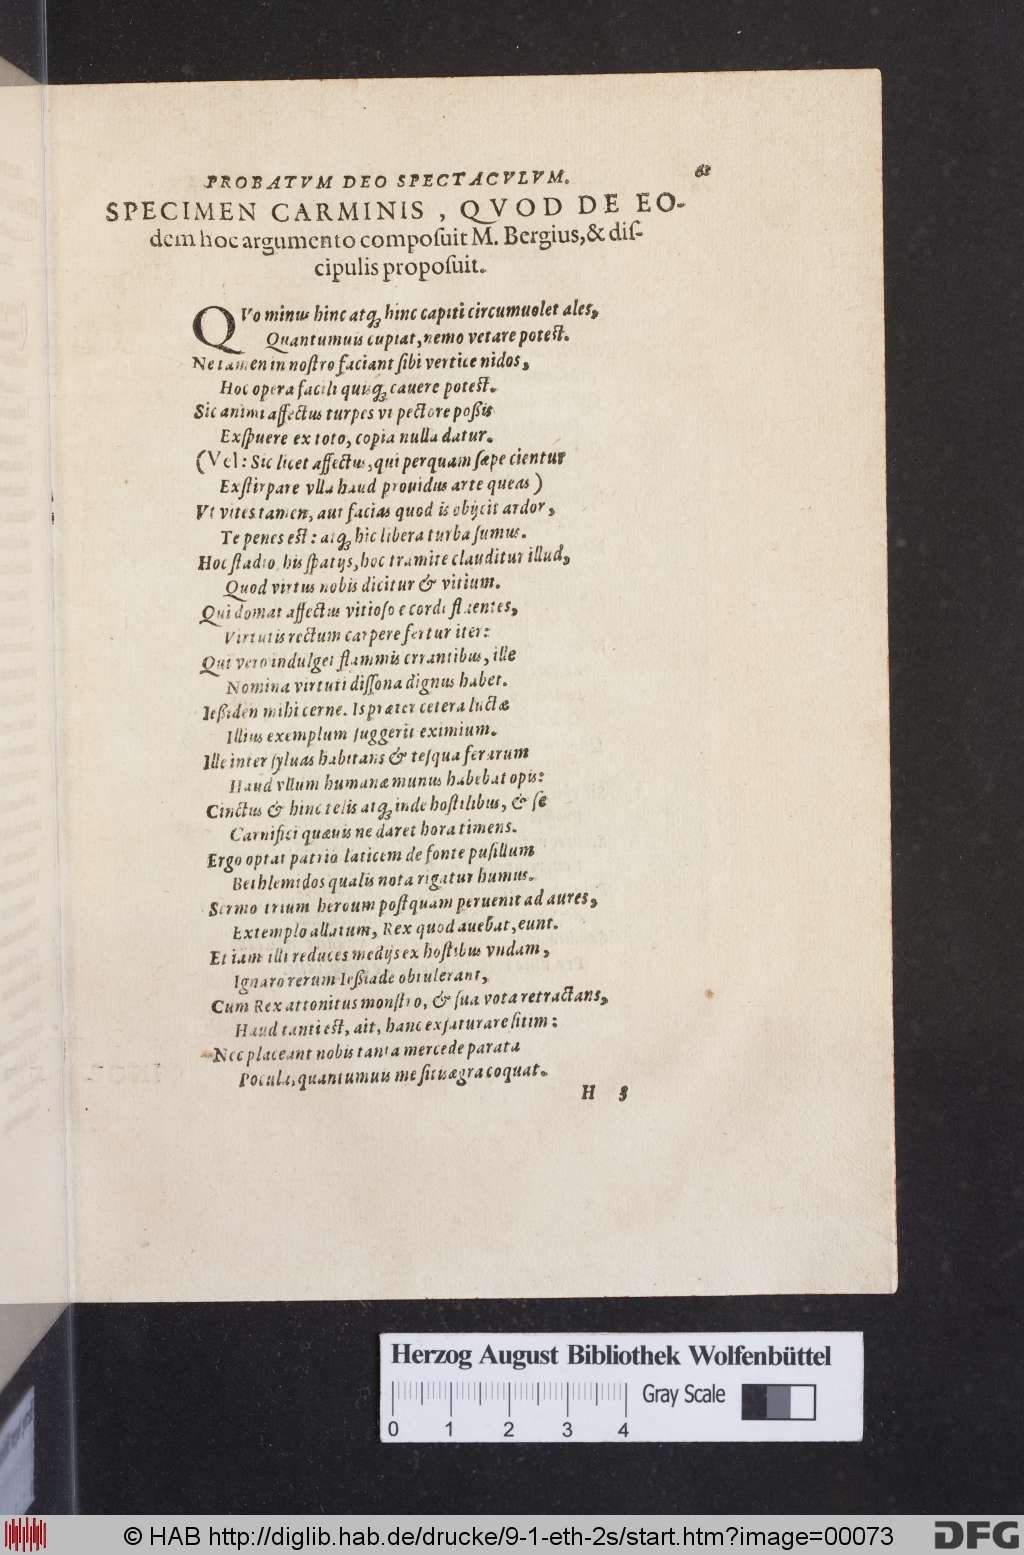 PROBATVM DEO SPECTACVLVM. 61
SPECIMEN CARMINIS, QVOD DE EO-
dem hoc argumento composuit M. Bergius, & dis-
cipulis proposuit.
QVo minus hinc atqꝫ hinc capiti circumuolet ales,
Quantumuis cupiat, nemo vetare potest.
Ne tamen in nostro faciant sibi vertice nidos,
Hoc opera facili quisqꝫ cauere potest.
Sic animi affectus turpes vt pectore poßis
Exspuere ex toto, copia nulla datur.
(Vel: Sic licet affectus, qui perquam sæpe cientur
Exstirpare vlla haud prouidus arte queas)
Vt vites tamen, aut facias quod is obijcit ardor,
Te penes est: atqꝫ hic libera turba sumus.
Hoc stadio, his spatijs, hoc tramite clauditur illud,
Quod virtus nobis dicitur & vitium.
Qui domat affectus vitioso e corde fluentes,
Virtutis rectum carpere fertur iter:
Qui vero indulget flammis errantibus, ille
Nomina virtuti dissona dignus habet.
Ießiden mihi cerne. Is præter cetera luctæ
Illius exemplum suggerit eximium.
Ille inter syluas habitans & tesqua ferarum
Haud vllum humanæ munus habebat opis:
Cinctus & hinc telis atqꝫ inde hostilibus, & se
Carnifici quæuis ne daret hora timens.
Ergo optat patrio laticem de fonte pusillum
Bethlemidos qualis nota rigatur humus.
Sermo trium heroum postquam peruenit ad aures,
Extemplo allatum, Rex quod auebat, eunt.
Et iam illi reduces medijs ex hostibus vndam,
Ignaro rerum Ießiade obtulerant,
Cum Rex attonitus monstro, & sua vota retractans,
Haud tanti est, ait, hanc exsaturare sitim:
Nec placeant nobis tanta mercede parata
Pocula, quantumuis me sitis ægra coquat.
H 3
Herzog August Bibliothek Wolfenbüttel
Gray Scale
0 1 2 3 4
© HAB http://diglib.hab.de/drucke/9-1-eth-2s/start.htm?image=00073
DFG